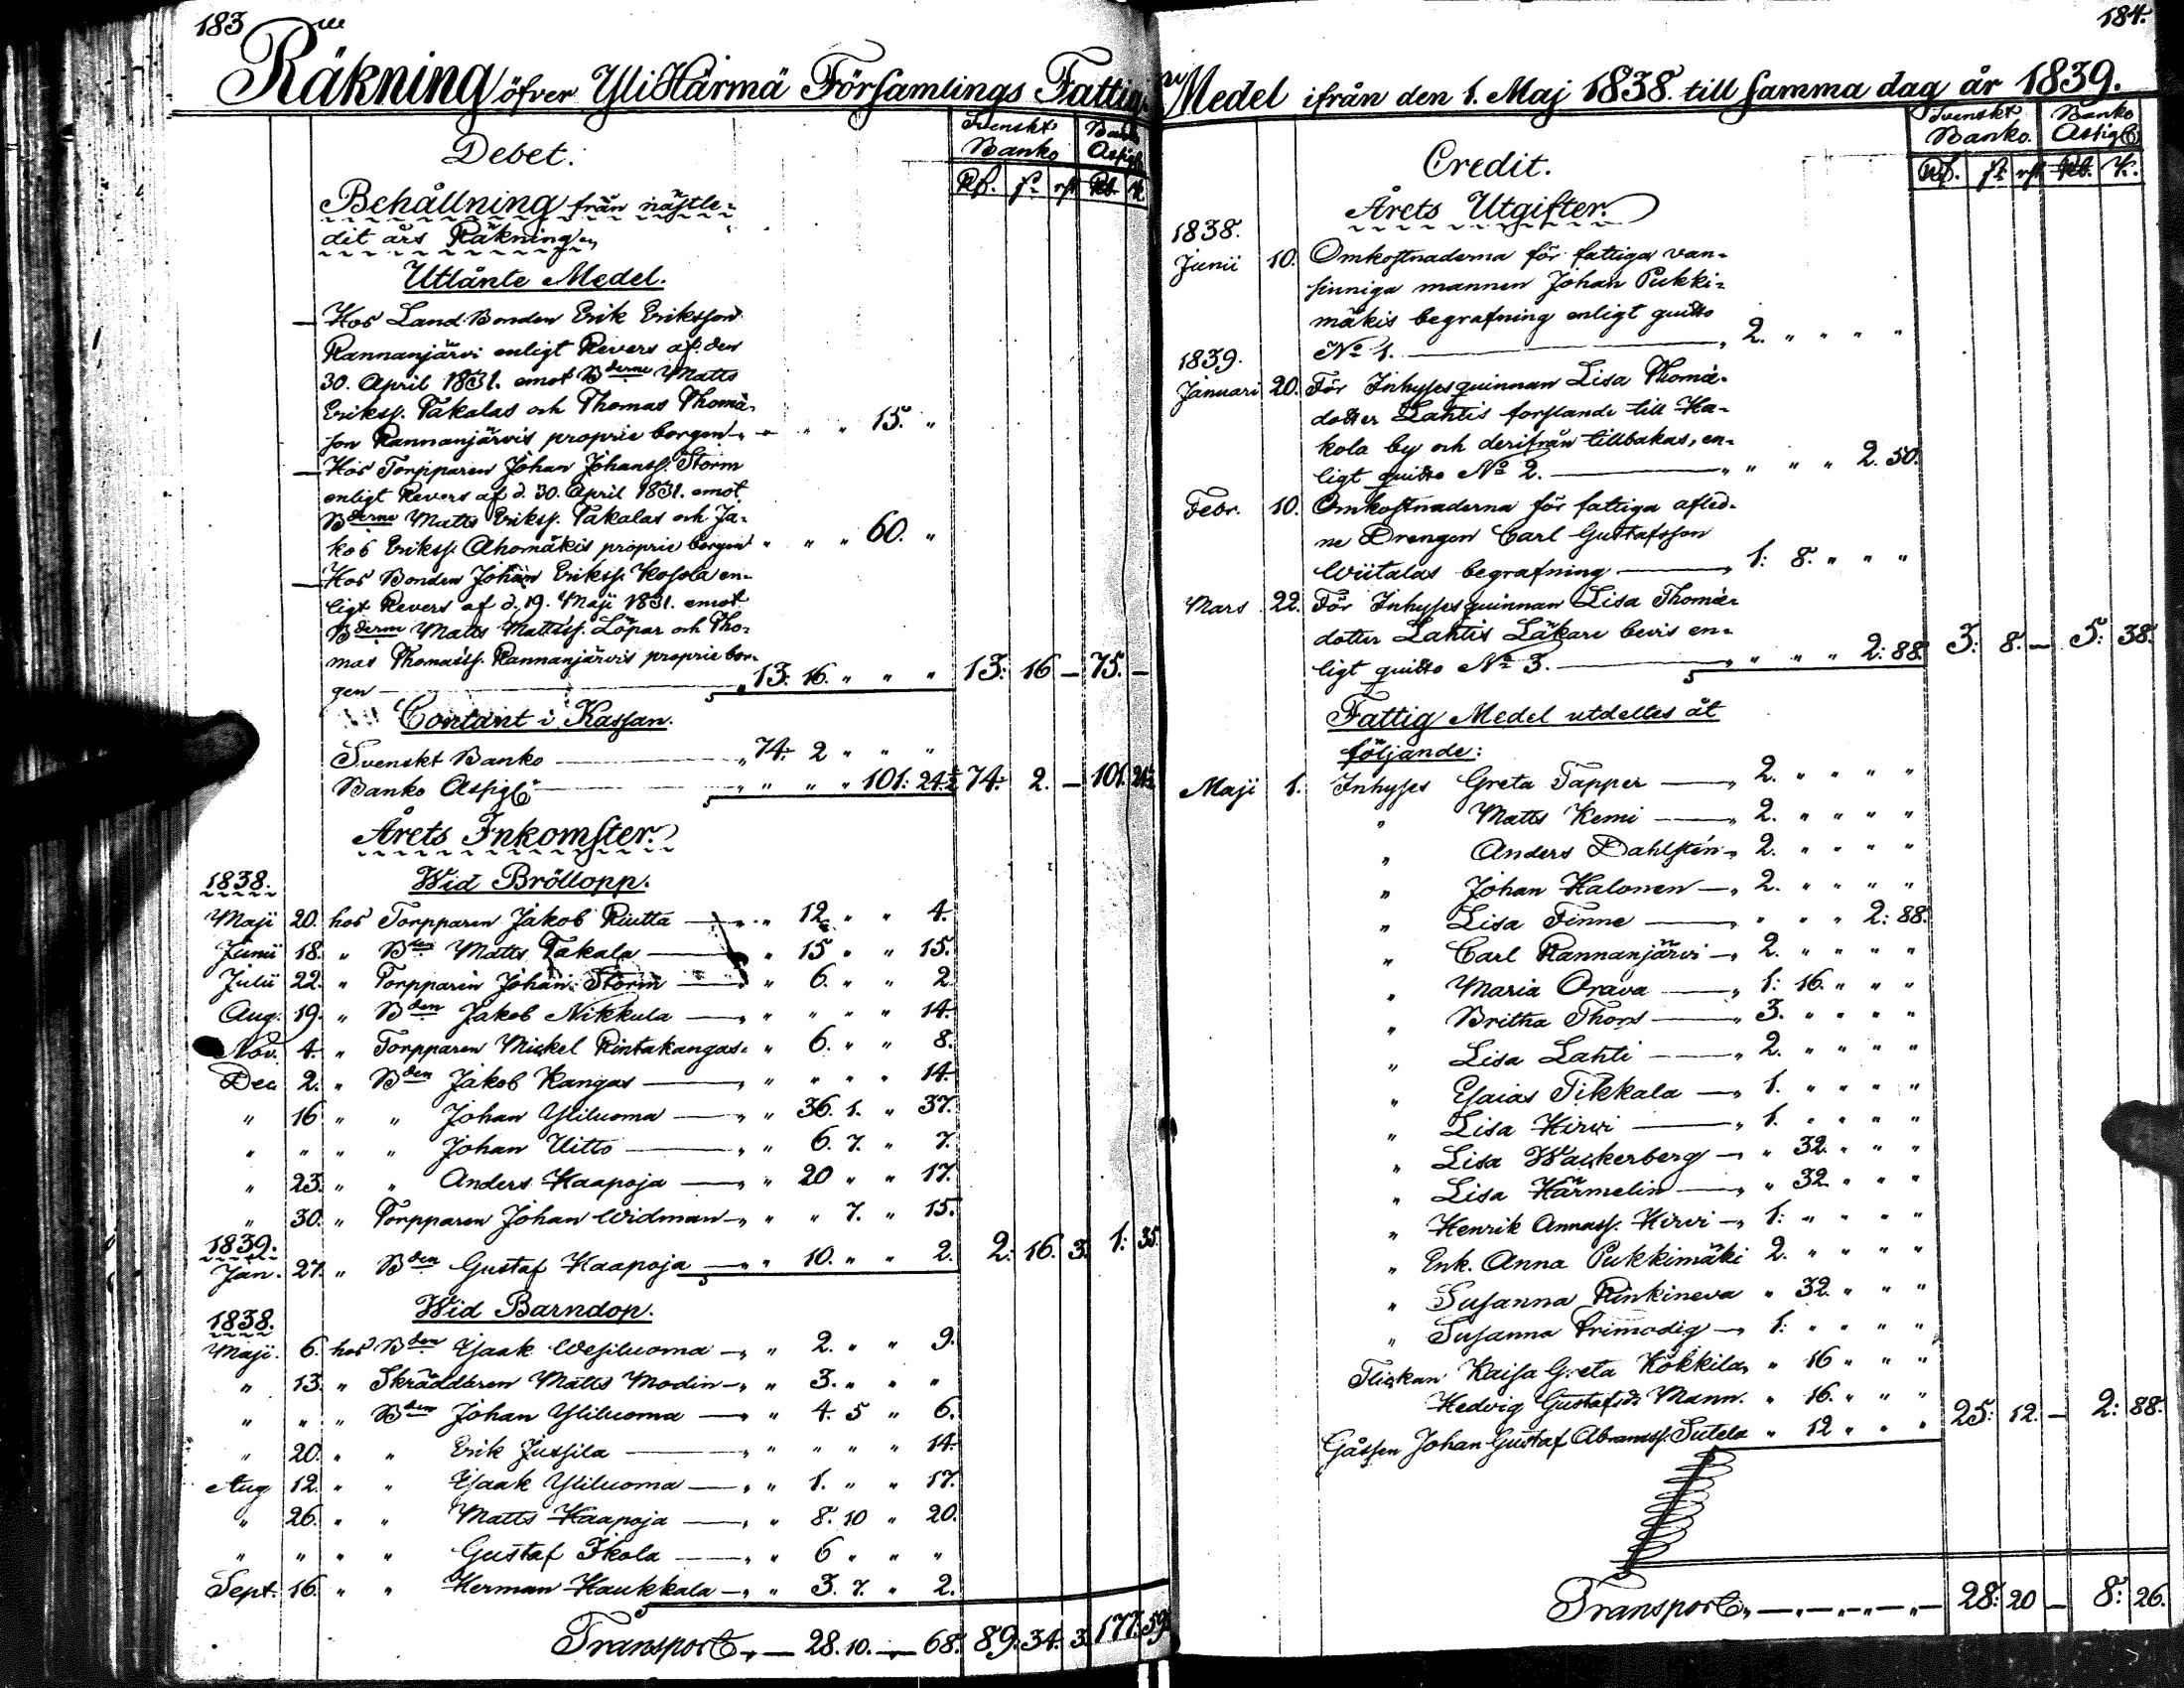 183
Räkning öfver Yli Härmä Församlings Fattig
Svenskt Banko
Banko Assigb
Debet.
Rd. s. rst. Rb. k.
Behållning från nästle-
dit års Räkning
Utlånte Medel.
— Hos Land Bonden Erik Eriksson
Rannanjärvi enligt Revers af den
30. April 1831. emot Bderne Matts
Erikss. Takalas och Thomas Thomæ-
son Rannanjärvis proprie borgen " " " 15. "
— Hos Torpparen Johan Johanss. Storm
enligt Revers af d. 30. April 1831. emot
Bderne Matts Erikss. Takalas och Ja-
kob Erikss. Ahomäkis proprie borgen " " " 60. "
— Hos Bonden Johan Erikss. Kosola en-
ligt Revers af d. 19. Maji 1831. emot
Bderne Matts Mattss. Löpar och Tho-
mas Thomæss. Rannanjärvis proprie bor-
gen — 13: 16. " " " 13: 16 — 75. —
Contant i Kassan.
Svenskt Banko — 74: 2 " " "
Banko Assigb — " " " 101: 24½ 74: 2. — 101. 24½
Årets Inkomster.
1838. Wid Bröllopp.
Maji 20. hos Torpparen Jakob Riutta — " 12 " " 4.
Junii 18. " Bden Matts Takala — " 15 " " 15.
Julii 22. " Torpparen Johan Storm — " 6. " " 2.
Aug. 19. " Bden Jakob Nikkula — " " " " 14.
Nov. 4. " Torpparen Mickel Rintakangas " 6. " " 8.
Dec 2. " Bden Jakob Kangas — " " " " 14.
" 16 " " Johan Yliluoma — " 36. 1. " 37.
" " " " Johan Uitto — " 6. 7. " 7.
" 23. " " Anders Haapoja — " 20 " " 17.
" 30. " Torpparen Johan Widman — " " 7. " 15.
1839.
Jan. 27. " Bden Gustaf Haapoja — " 10. " " 2. 2: 16. 3. 1: 35.
1838. Wid Barndop.
Maji. 6. hos Bden Isaak Wesiluoma — " 2. " " 9.
" 13. " Skräddaren Matts Modin — " 3. " " "
" " " Bden Johan Yliluoma — " 4. 5 " 6.
" 20. " " Erik Jussila — " " " " 14.
Aug 12. " " Isaak Yliluoma — " 1. " " 17.
" 26. " " Matts Haapoja — " 8. 10 " 20.
" " " " Gustaf Ikola — " 6 " " "
Sept. 16. " " Herman Haukkala — " 3. 7. " 2.
Transport — 28. 10. — 68. 89. 34. 3. 177. 59.
184.
Medel ifrån den 1. Maj 1838. till samma dag år 1839.
Svenskt Banko.
Banko Assigb
Credit.
Rd. s. rst. Rb. k.
Årets Utgifter.
1838.
Junii 10. Omkostnaderna för fattiga van-
sinniga mannen Johan Pukki-
mäkis begrafning enligt quitto
No 1. — 2. " " " "
1839.
Januari 20. För Inhysesquinnan Lisa Thomæ-
dotter Lahtis forslande till Ha-
kola by och derifrån tillbakas, en-
ligt quitto No 2. — " " " 2. 50.
Febr. 10. Omkostnaderna för fattiga afled-
ne Drengen Carl Gustafsson
Wiitalas begrafning — 1: 8. " " "
Mars 22. För Inhysesquinnan Lisa Thomæ-
dotter Lahtis Läkare bevis en-
ligt quitto No 3. — " " " 2: 88. 3: 8. — 5: 38.
Fattig Medel utdeltes åt
följande:
Maji 1. Inhyses Greta Tapper — 2. " " " "
" Matts Kemi — 2. " " " "
" Anders Dahlsten 2. " " " "
" Johan Halonen — 2. " " " "
" Lisa Finne — " " " 2: 88.
" Carl Rannanjärvi — 2. " " " "
" Maria Orava — 1: 16. " " "
" Britha Thors — 3. " " " "
" Lisa Lahti — 2. " " " "
" Esaias Tikkala — 1. " " " "
" Lisa Hirvi — 1. " " " "
" Lisa Wackerberg — " 32. " " "
" Lisa Härmelin — " 32 " " "
" Henrik Annass. Hirvi — 1: " " " "
" Enk. Anna Pukkimäki 2. " " " "
" Susanna Rinkineva " 32. " " "
" Susanna Frimodig — 1: " " " "
Flickan Kaisa Greta Kökkila " 16 " " "
Hedvig Gustafsdr Mann. " 16. " " "
Gåssen Johan Gustaf Abramss. Sutela " 12 " " " 25: 12. — 2: 88.
Transport — 28: 20 — 8: 26.